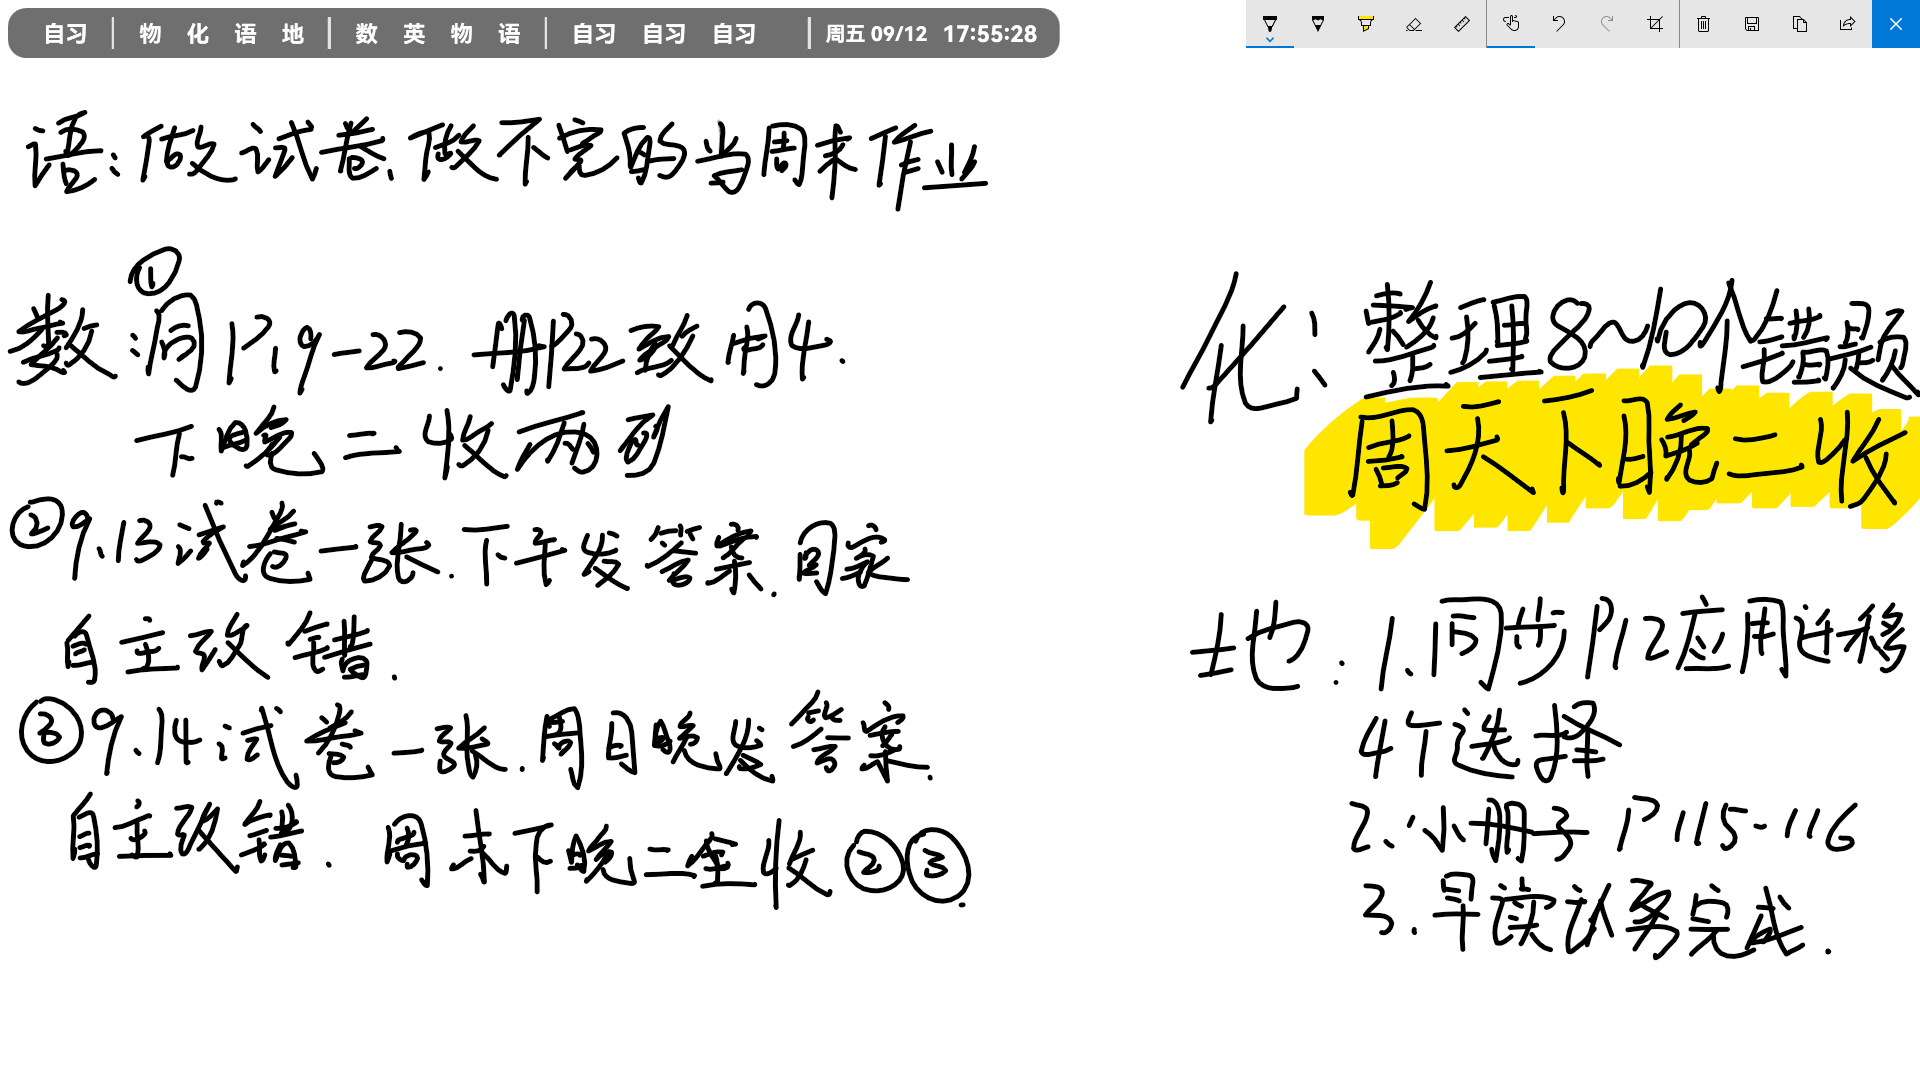 自习 | 物 化 语 地 | 数 英 物 语 | 自习 自习 自习 | 周五 09/12 17:55:28
语:做试卷、做不完的当周末作业
数:①同P19-22. 册P22致用4.
下晚二收两码
②9.13试卷一张.下午发答案.回家
自主改错.
③9.14试卷一张.周日晚发答案.
自主改错. 周末下晚二全收②③.
化:整理8~10个错题
周天下晚二收
地:1.同步P12应用迁移
4个选择
2.小册子P115-116
3.早读认务完成.